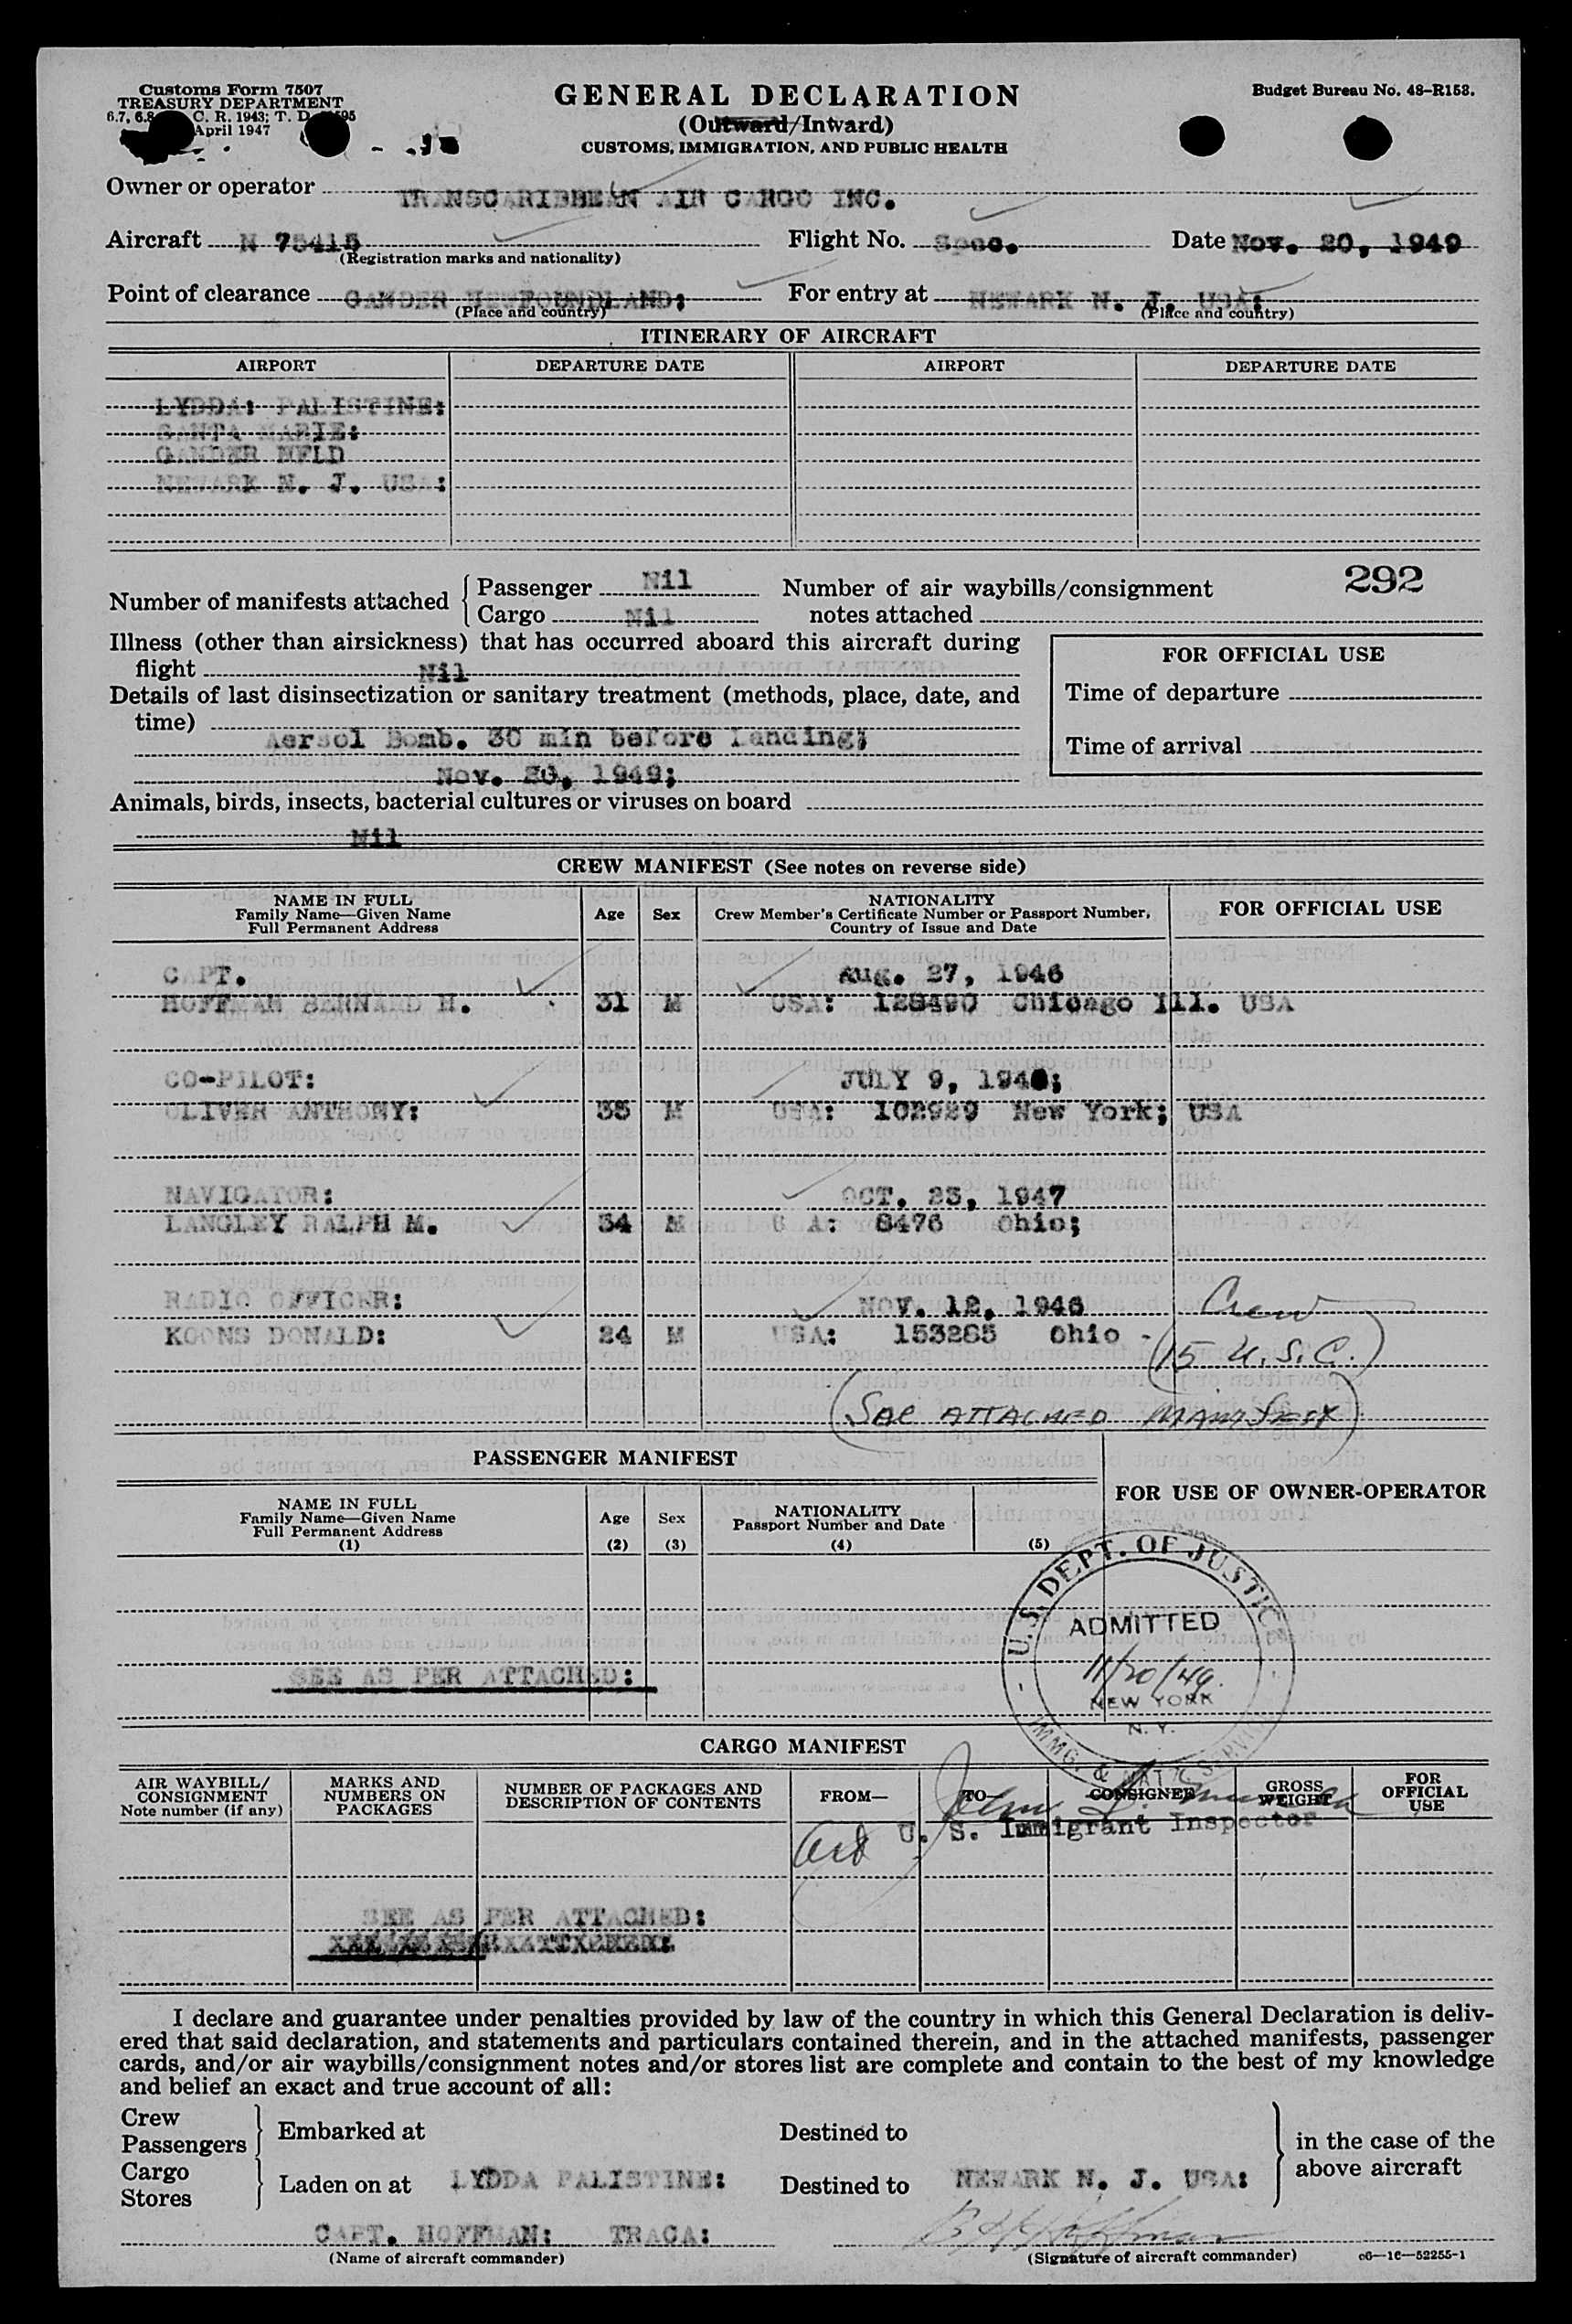 Customs Form 7507
TREASURY DEPARTMENT
6.7, 6.8 C. R. 1943; T. D.
April 1947
GENERAL DECLARATION
(Outward/Inward)
CUSTOMS, IMMIGRATION, AND PUBLIC HEALTH
Budget Bureau No. 48-R153.
Owner or operator TRANSCARIBBEAN AIR CARGO INC.
Aircraft N 75415 Flight No. Spec. Date Nov. 20, 1949
(Registration marks and nationality)
Point of clearance GANDER NEWFOUNDLAND; For entry at NEWARK N. J. USA:
(Place and country) (Place and country)
ITINERARY OF AIRCRAFT
AIRPORT DEPARTURE DATE AIRPORT DEPARTURE DATE
LYDDA: PALISTINE:
SANTA MARIE:
GANDER NFLD
NEWARK N. J. USA:
292
Number of manifests attached Passenger Nil Number of air waybills/consignment
Cargo Nil notes attached
Illness (other than airsickness) that has occurred aboard this aircraft during
flight Nil
Details of last disinsectization or sanitary treatment (methods, place, date, and
time)
Aersol Bomb. 30 min before landing;
Nov. 20, 1949;
FOR OFFICIAL USE
Time of departure
Time of arrival
Animals, birds, insects, bacterial cultures or viruses on board
Nil
CREW MANIFEST (See notes on reverse side)
NAME IN FULL
Family Name—Given Name
Full Permanent Address
Age
Sex
NATIONALITY
Crew Member's Certificate Number or Passport Number,
Country of Issue and Date
FOR OFFICIAL USE
CAPT. Aug. 27, 1946
HOFFMAN BERNARD H. 31 M USA: 128490 Chicago Ill. USA
CO-PILOT: JULY 9, 194
OLIVER ANTHONY: 35 M USA: 102929 New York; USA
NAVIGATOR: OCT. 23, 1947
LANGLEY RALPH M. 34 M A: 8476 Ohio;
RADIO OFFICER: NOV. 12, 1946 Crew
KOONS DONALD: 24 M USA: 153285 Ohio -
(15 U.S.C.)
(See ATTACHED MANIFEST)
PASSENGER MANIFEST
FOR USE OF OWNER-OPERATOR
NAME IN FULL
Family Name—Given Name
Full Permanent Address
(1)
Age
(2)
Sex
(3)
NATIONALITY
Passport Number and Date
(4)
(5)
SEE AS PER ATTACHED:
U.S. DEPT. OF JUSTICE
ADMITTED
11/20/49.
NEW YORK
N. Y.
IMMG. & NAT'Z SERVICE
CARGO MANIFEST
AIR WAYBILL/
CONSIGNMENT
Note number (if any)
MARKS AND
NUMBERS ON
PACKAGES
NUMBER OF PACKAGES AND
DESCRIPTION OF CONTENTS
FROM—
TO—
CONSIGNEE
GROSS
WEIGHT
FOR
OFFICIAL
USE
John
U. S. Immigrant Inspector
SEE AS PER ATTACHED:
I declare and guarantee under penalties provided by law of the country in which this General Declaration is deliv-
ered that said declaration, and statements and particulars contained therein, and in the attached manifests, passenger
cards, and/or air waybills/consignment notes and/or stores list are complete and contain to the best of my knowledge
and belief an exact and true account of all:
Crew
Passengers
Embarked at
Destined to
Cargo
Stores
Laden on at LYDDA PALISTINE:
Destined to NEWARK N. J. USA:
in the case of the
above aircraft
CAPT. HOFFMAN: TRACA:
(Name of aircraft commander)
B H Hoffman
(Signature of aircraft commander)
c6—16—52255-1